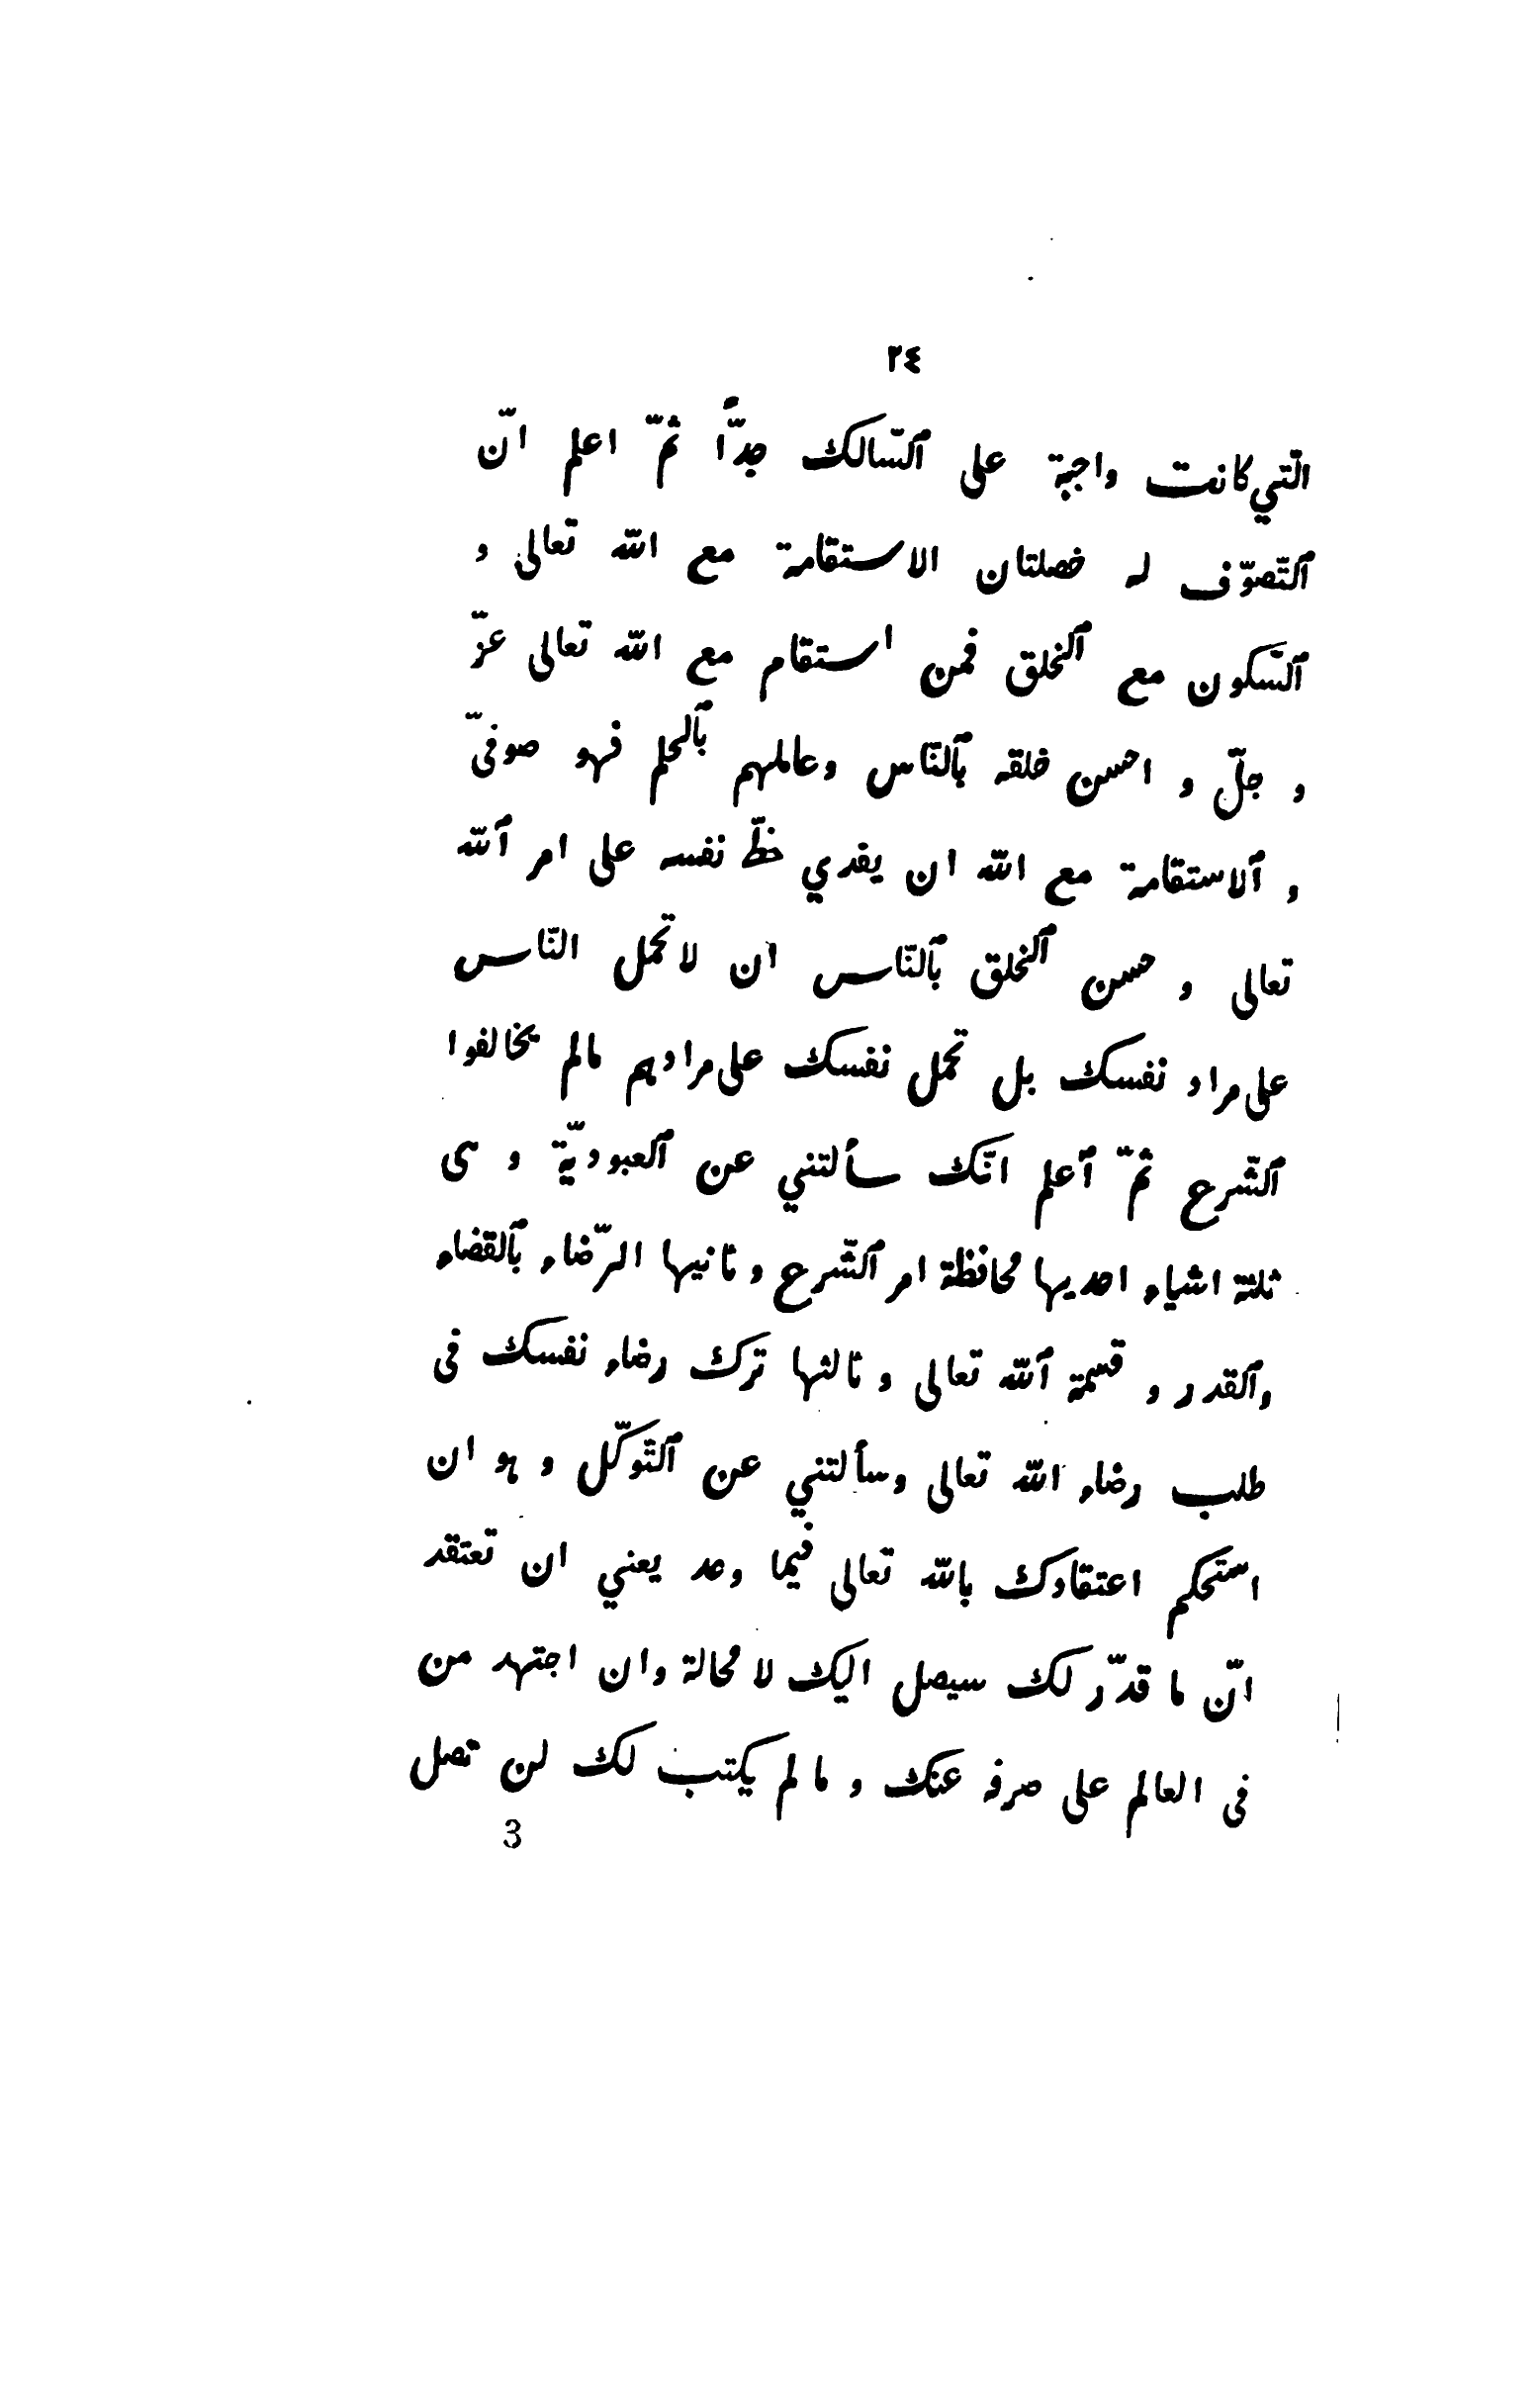 ٢٤
الّتي كانت واجبة على ٱلسّالك جدّاً ثمّ اعلم انّ
ٱلتّصوّف له خصلتان الاستقامة مع اللّه تعالى و
ٱلسّكون مع ٱلخلق فمن استقام مع اللّه تعالى عزّ
و جلّ و احسن خلقه بٱلنّاس وعاملهم بٱلحلم فهو صوفىّ
و ٱلاستقامة مع اللّه ان يفدي حظّ نفسه على امر ٱللّه
تعالى و حسن ٱلخلق بٱلنّاس ان لا تحمل النّاس
على مراد نفسك بل تحمل نفسك على مرادهم مالم يخالفوا
ٱلشّرع ثمّ ٱعلم انّك سألتني عن ٱلعبوديّة و هى
ثلثة اشياء احديها محافظة امر ٱلشّرع و ثانيها الرّضاء بٱلقضاء
وٱلقدر و قسمة ٱللّه تعالى و ثالثها ترك رضاء نفسك فى
طلب رضاء اللّه تعالى وسألتني عن ٱلتّوكّل و هو ان
استحكم اعتقادك باللّه تعالى فيما وعد يعني ان تعتقد
انّ ما قدّر لك سيصل اليك لا محالة وان اجتهد من
فى العالم على صرفه عنك و مالم يكتب لك لن تصل
3